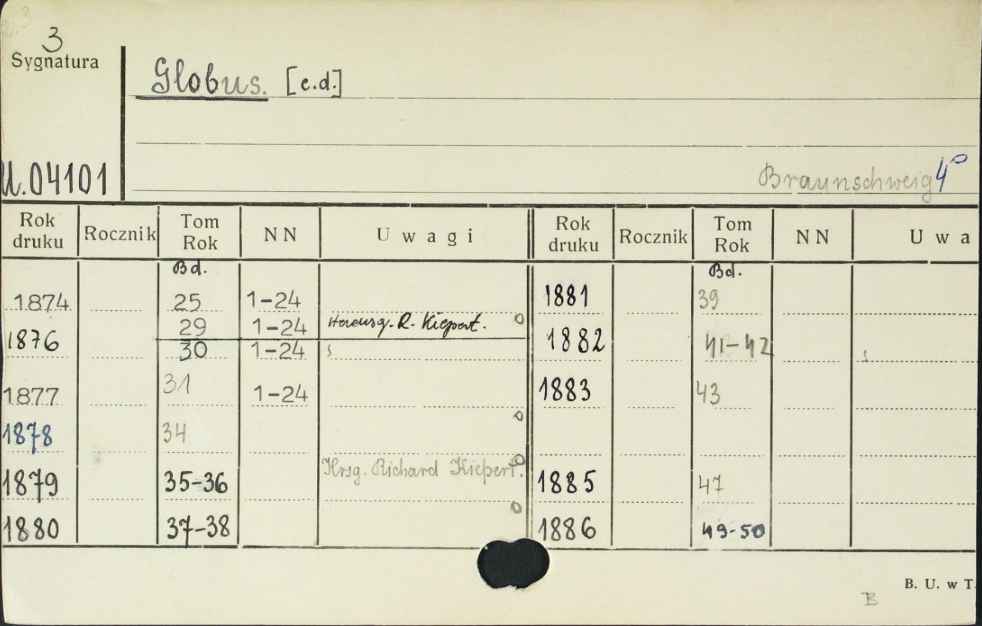 3
Sygnatura
Globus. [c.d.]
U.04101
Braunschweig 4°
Rok druku Rocznik Tom Rok NN Uwagi Rok druku Rocznik Tom Rok NN Uwa
Bd. Bd.
1874 25 1-24 1881 39
1876 29 1-24 Herausg. R. Kiepert. 1882 41-42
30 1-24
1877 31 1-24 1883 43
1878 34
1879 35-36 Hrsg. Richard Kiepert. 1885 47
1880 37-38 1886 49-50
B. U. w T.
B